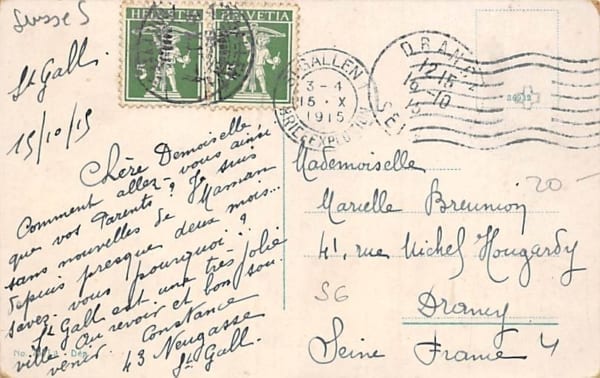 Suisse S
HELVETIA HELVETIA
St Gall
15/10/15
ST. GALLEN 1
3-4
15. X
1915
BRIEFEXPEDITION
DRANCY
12 15
16 10
15
SEINE
Chère Demoiselle
Comment allez-vous ainsi
que vos Parents? Je suis
sans nouvelles de Maman
depuis presque deux mois...
savez-vous pourquoi..?
St Gall est une très jolie
ville. Au revoir et bon sou
venir. Constance
43 Neugasse
St Gall.
Mademoiselle
Marielle Breunion
41, rue Michel Hougardy
Drancy
Seine France
20-
SG
4
No.